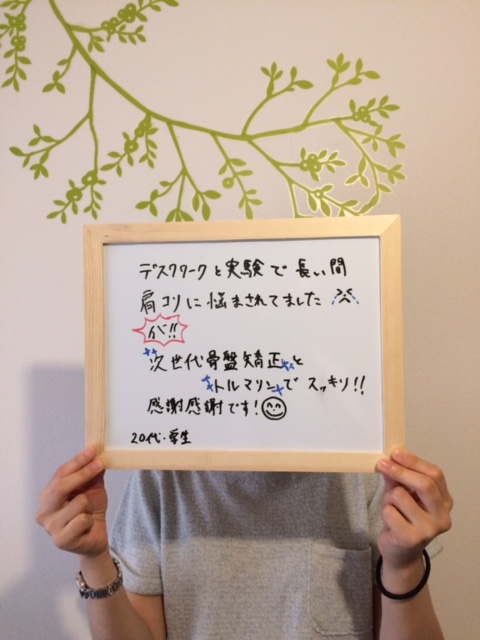 デスクワークと実験で長い間
肩コリに悩まされてました
が!!
次世代骨盤矯正と
トルマリンでスッキリ!!
感謝感謝です!
20代・学生